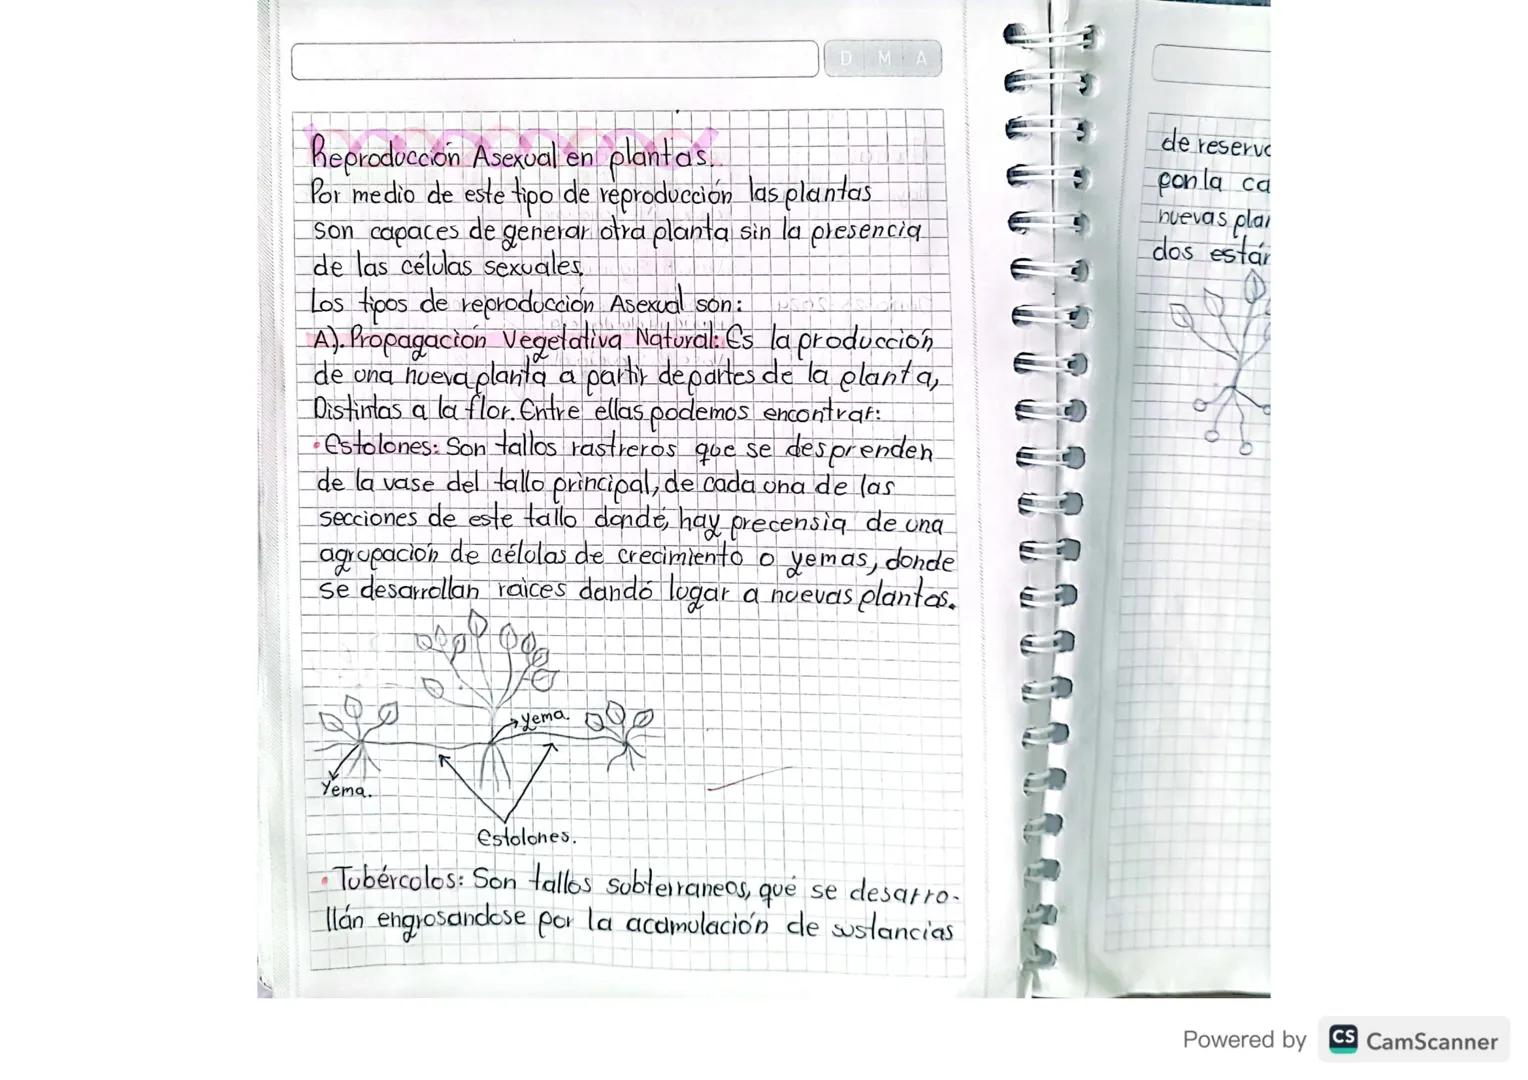 D M A
Reproducción Asexual en plantas.
Por medio de este tipo de reproducción las plantas
son capaces de generar otra planta sin la presencia
de las células sexuales.
Los tipos de reproducción Asexual son:
A). Propagación Vegetativa Natural: Es la producción
de una nueva planta a partir de partes de la planta,
Distintas a la flor. Entre ellas podemos encontrar:
• Estolones: Son tallos rastreros que se desprenden
de la vase del tallo principal, de cada una de las
secciones de este tallo dondé, hay precensia de una
agrupación de células de crecimiento o yemas, donde
se desarrollan raices dandó lugar a nuevas plantas.
yema.
Yema.
Estolones.
• Tubércolos: Son tallos subterraneos, qué se desarro-
llán engrosandose por la acamulación de sustancias
de reserva
pon la ca
nuevas plan
dos están
Powered by CS CamScanner